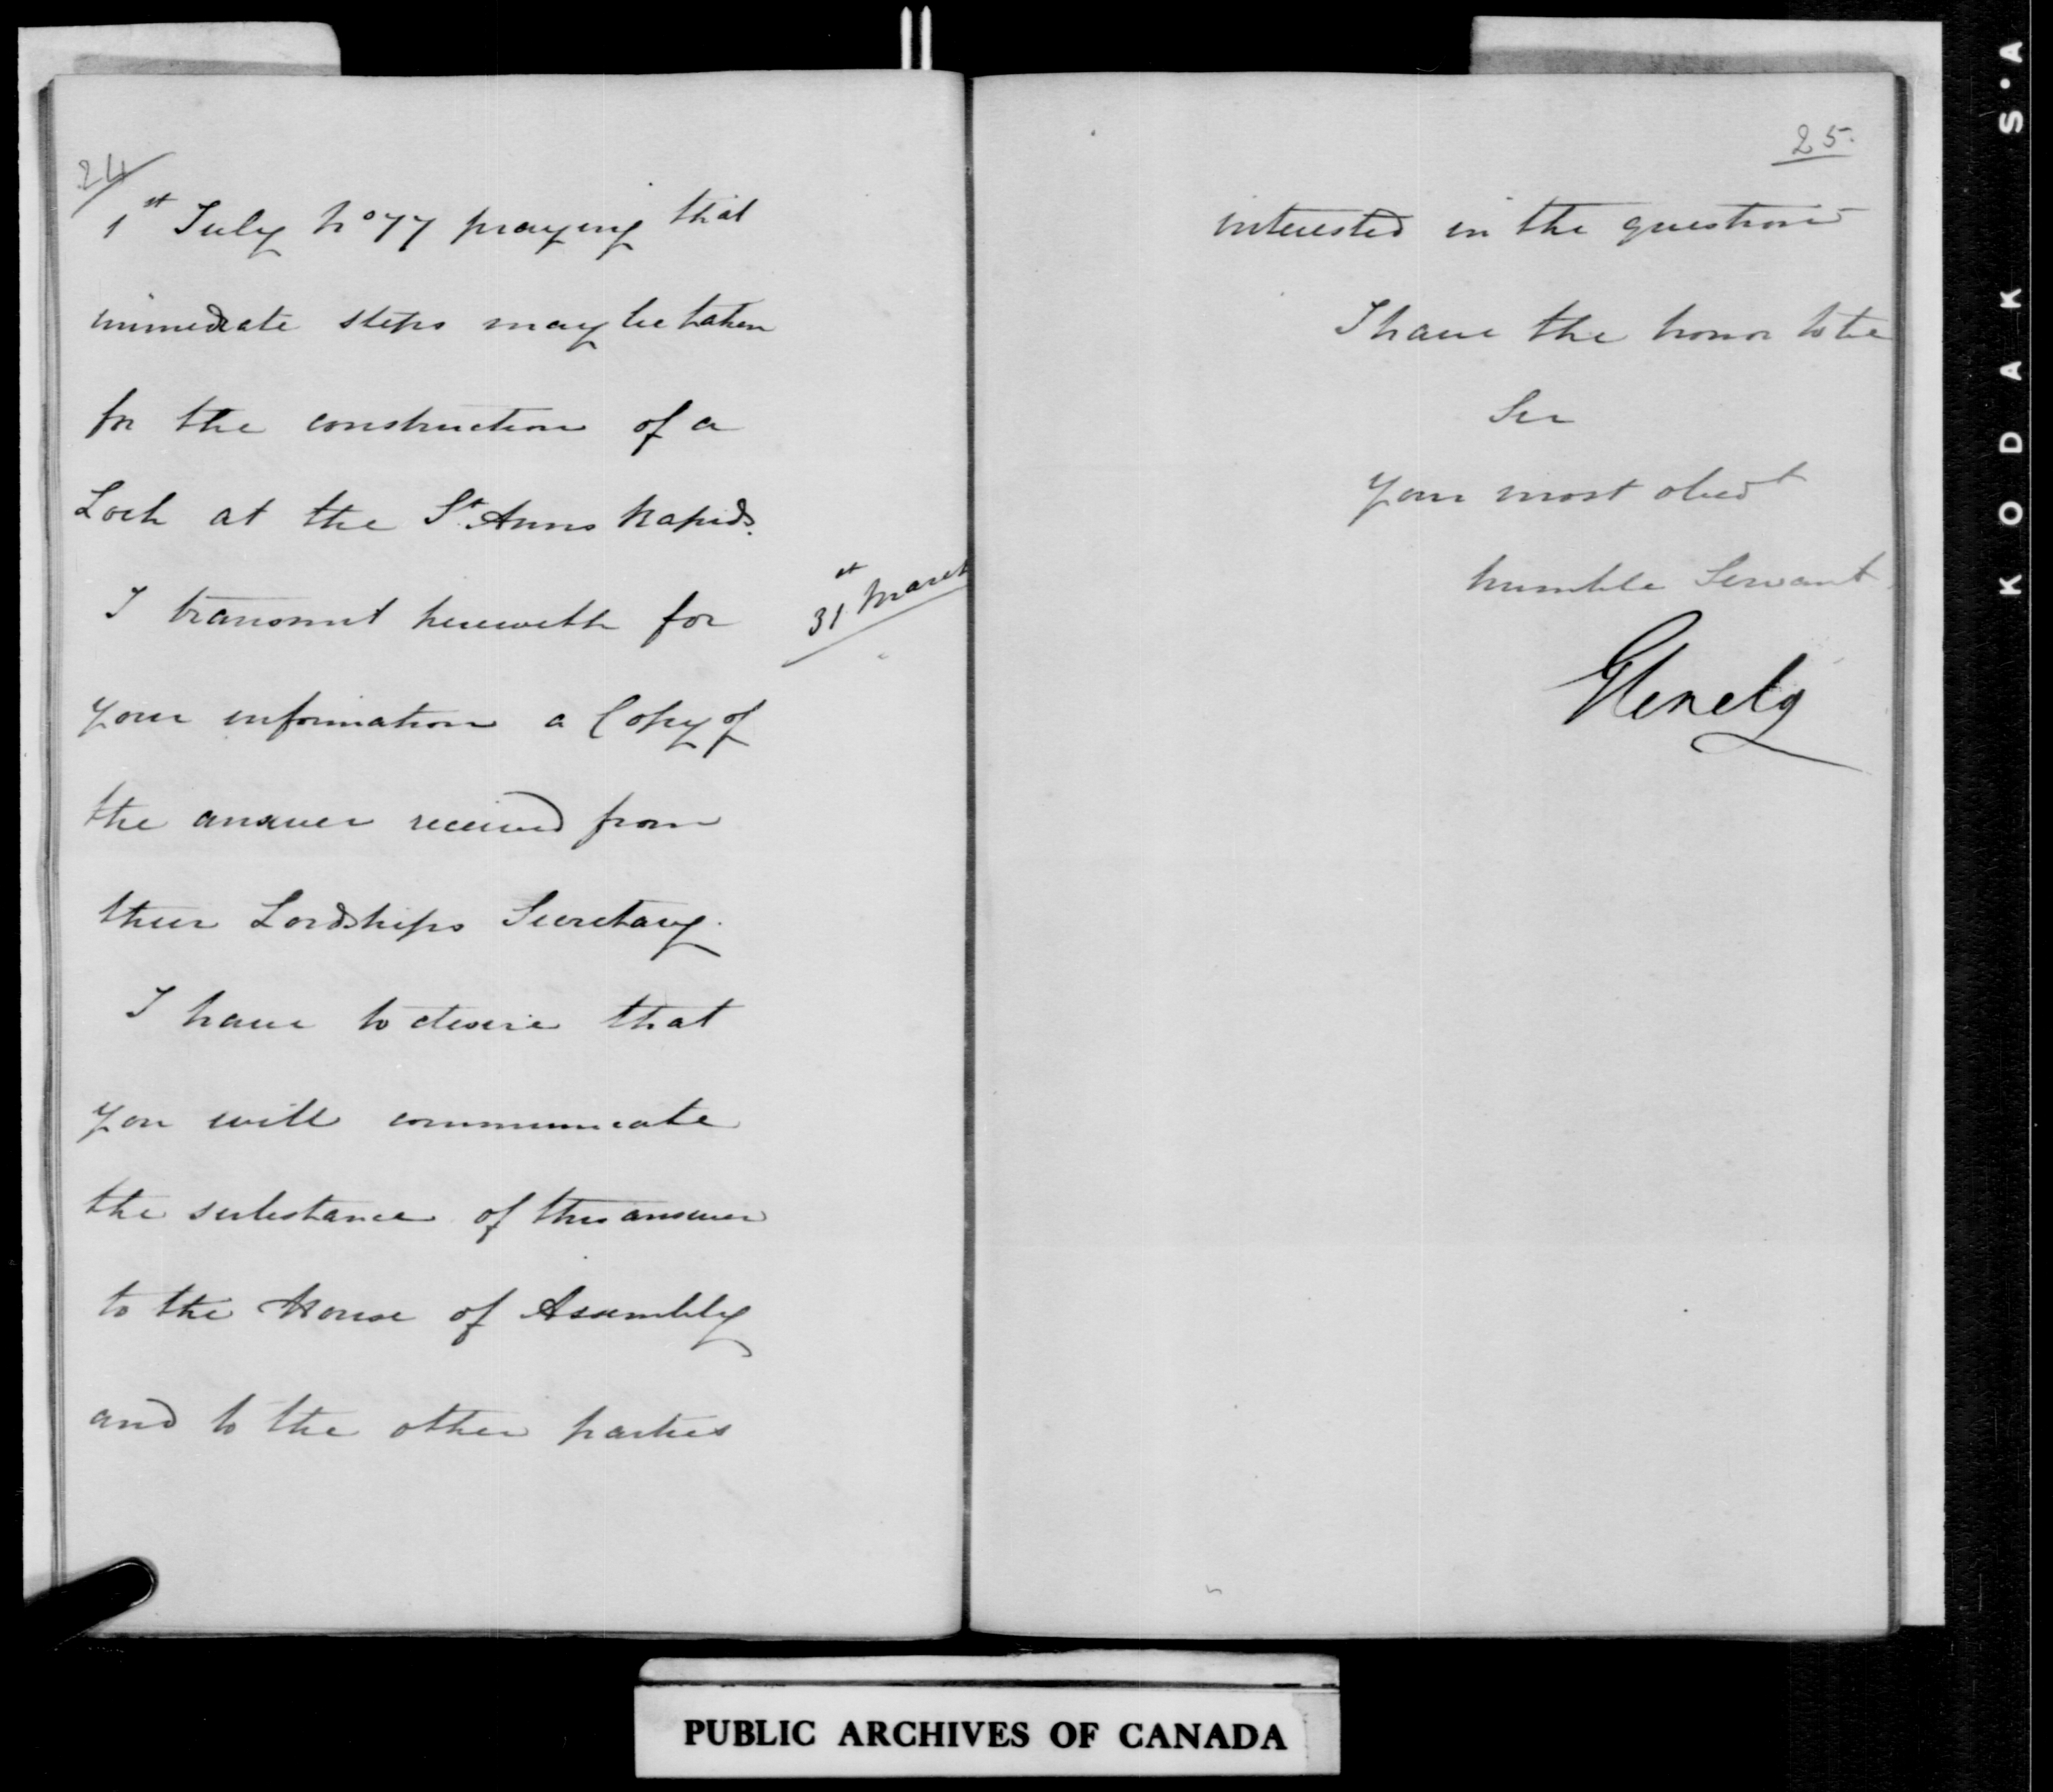 24
1st July No 77 praying that
immediate steps may be taken
for the construction of a
Lock at the St. Anns Rapids.
I transmit herewith for
31st March
your information a Copy of
the answer received from
their Lordships Secretary.
I have to desire that
you will communicate
the substance of this answer
to the House of Assembly
and to the other parties
25.
interested in the question
I have the honor to be
Sir
Your most obedt
humble Servant
Glenelg
PUBLIC ARCHIVES OF CANADA
KODAK S.A